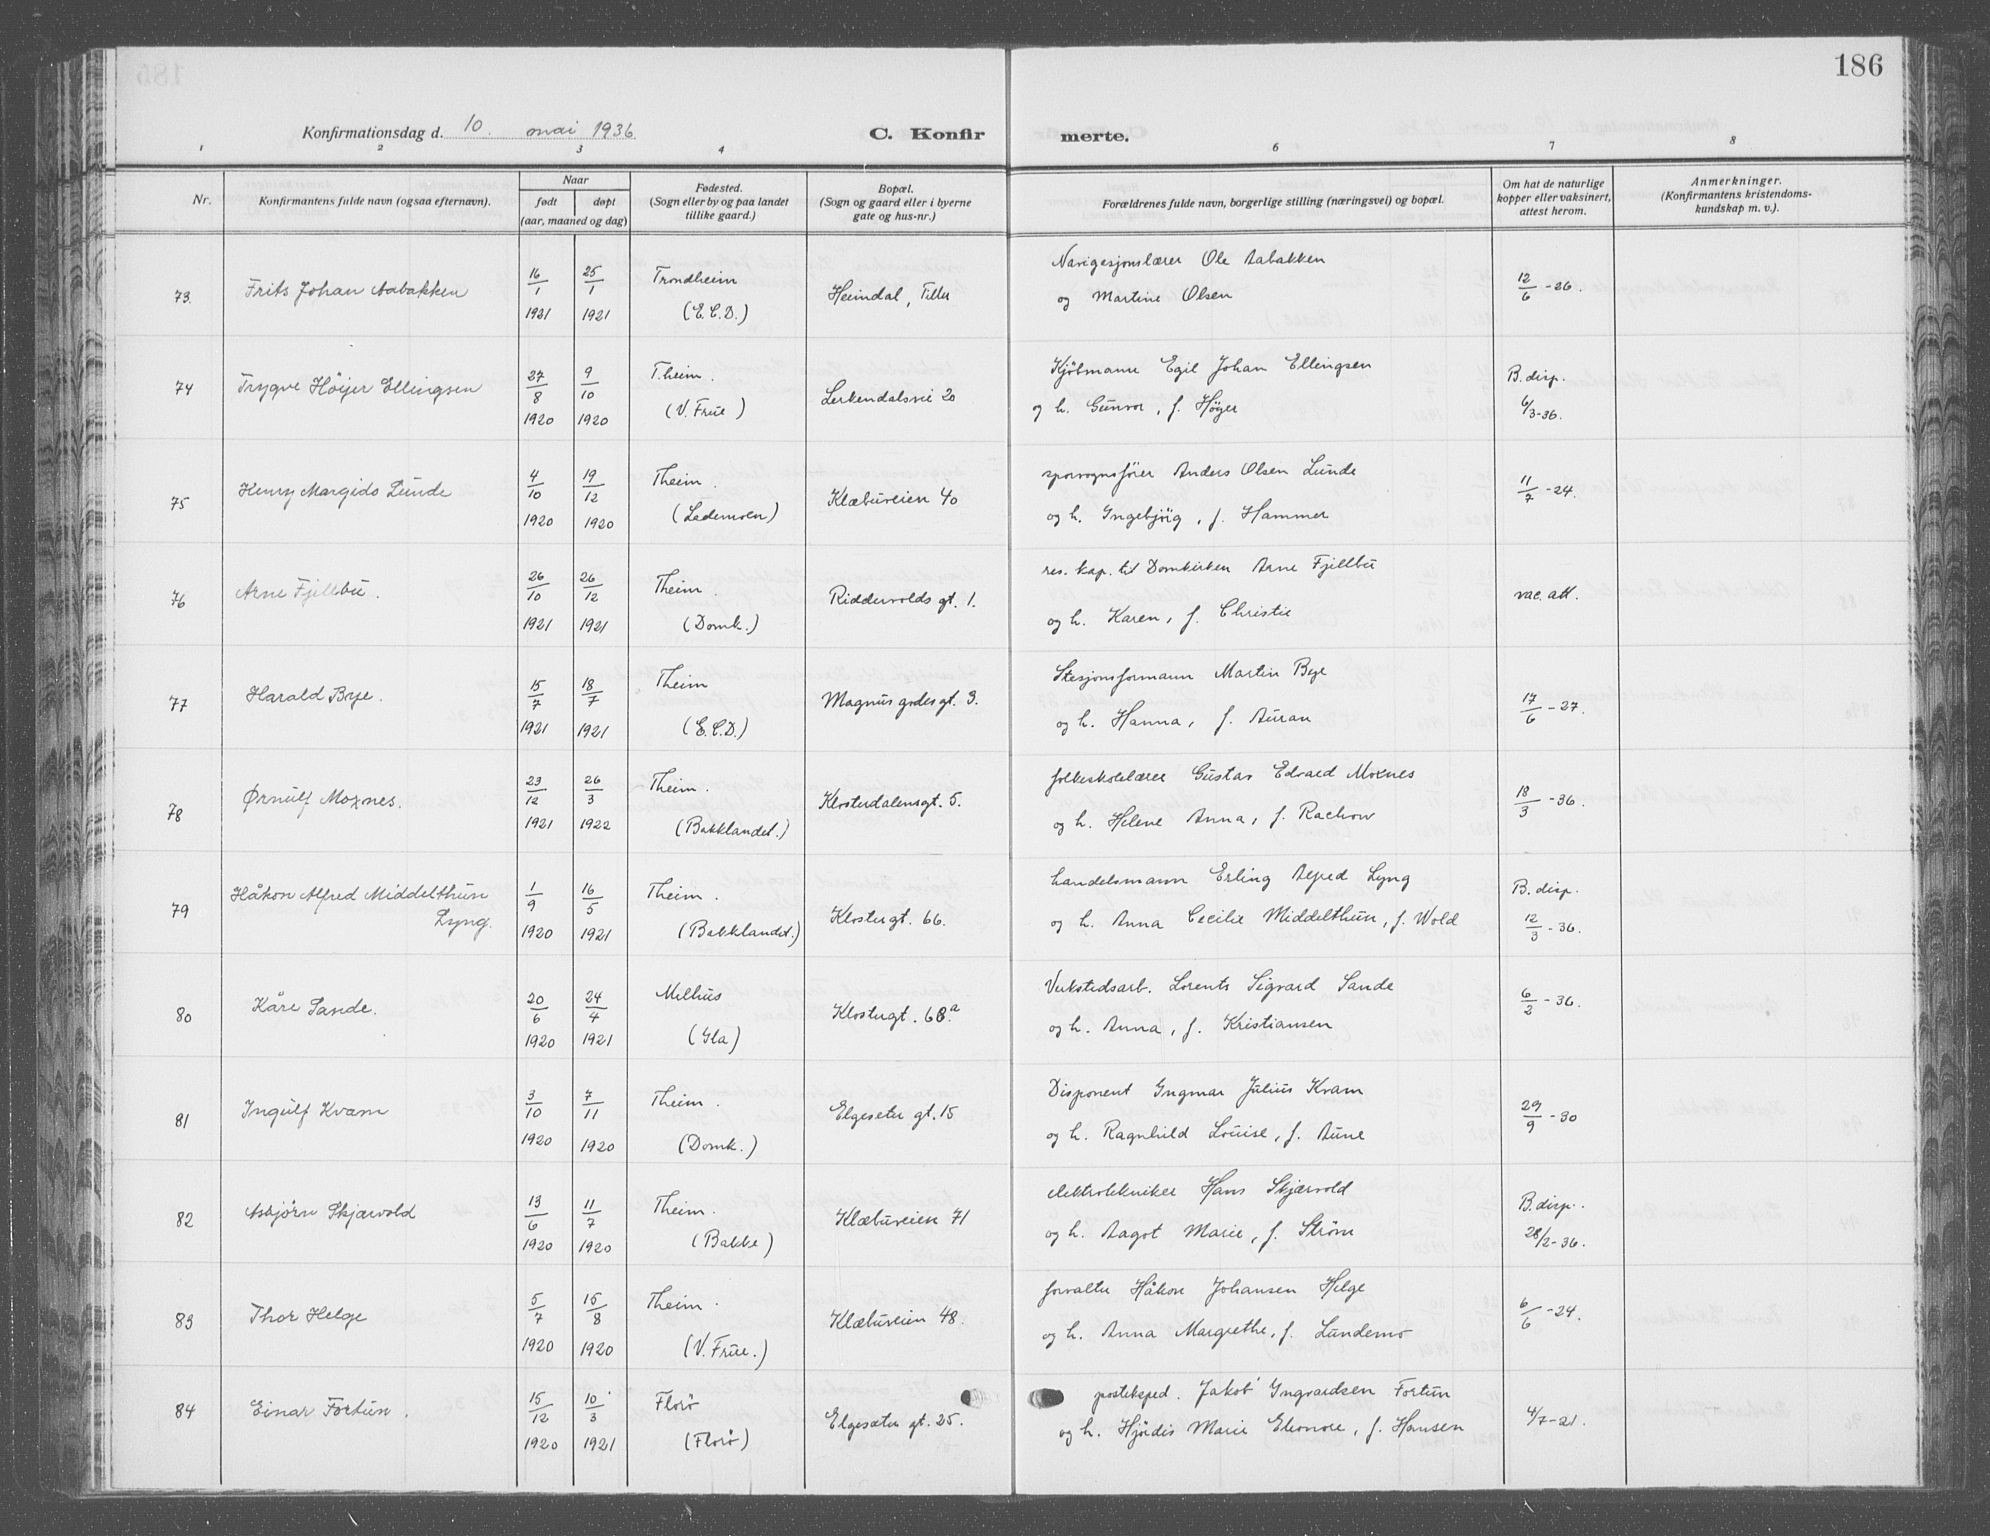 186
Konfirmationsdag d. 10. mai 1936
C. Konfir merte.
1 2 3 4 6 7 8
Nr.
Konfirmantens fulde navn (ogsaa efternavn).
Naar
født døpt
(aar, maaned og dag)
Fødested.
(Sogn eller by og paa landet
tillike gaard.)
Bopæl.
(Sogn og gaard eller i byerne
gate og hus-nr.)
Forældrenes fulde navn, borgerlige stilling (næringsvei) og bopæl.
Om hat de naturlige
kopper eller vaksinert,
attest herom.
Anmerkninger.
(Konfirmantens kristendoms-
kundskap m. v.).
73 Frits Johan Aabakken 16/1 1921 25/1 1921 Trondheim (E.C.D.) Heimdal, Tiller
Navigesjonslærer Ole Aabakken
og Martine Olsen
12/6 - 26.
74 Trygve Höyer Ellingsen 27/8 1920 9/10 1920 T.heim. (V. Frue) Lerkendalsvei 20
Kjölmann Egil Johan Ellingsen
og h. Gunvor, f. Høyer
B. disp.
6/3-36.
75 Henry Margido Lunde 4/10 1920 19/12 1920 Theim. (Lademoen) Klæbuveien 40
sporvognsfører Anders Olsen Lunde
og h. Ingebjörg, f. Hammer
11/7 - 24.
76 Arne Fjellbu. 26/10 1921 26/12 1921 Theim. (Domk.) Riddervolds gt. 1.
res. kap. til Domkirken Arne Fjellbu
og h. Karen, f. Christie
vac. att.
77 Harald Bye. 15/7 1921 18/7 1921 Theim (E.C.D.) Magnus godes gt. 3.
Stesjonsformann Martin Bye
og h. Hanna, f. Auran
17/6 - 27.
78 Ørnulf Moxnes. 23/12 1921 26/3 1922 Theim. (Bakklandet.) Klosterdalensgt. 5.
folkeskolelærer Gustav Edvard Moxnes
og h. Helene Anna, f. Rachow
18/3 - 36.
79 Håkon Alfred Middelthun
Lyng. 1/9 1920 16/5 1921 Theim. (Bakklandet.) Klostergt. 66.
handelsmann Erling Alfred Lyng
og h. Anna Cecilie Middelthun, f. Wold
B. disp.
12/3 - 36.
80 Kåre Sande. 20/6 1920 24/4 1921 Melhus (Gla) Klostergt. 68.a
Verkstedsarb. Lorents Sigvard Sande
og h. Anna, f. Kristiansen
6/2 - 36.
81 Ingulf Kvam 3/10 1920 7/11 1920 Theim. (Domk.) Elgeseter gt. 15
Disponent Ingmar Julius Kvam
og h. Ragnhild Louise, f. Aune
29/9 - 30
82 Asbjörn Skjærvold 13/6 1920 11/7 1920 Theim. (Bakke) Klæbuveien 71
elektrotekniker Hans Skjærvold
og h. Aagot Marie, f. Strøm
B. disp..
28/2-36.
83 Thor Helge 5/7 1920 15/8 1920 Theim. (V. Frue.) Klæbuveien 48.
forvalter Håkon Johansen Helge
og h. Anna Margrethe, f. Lundemo
6/6 - 24.
84 Einar Fortun. 15/12 1920 10/3 1921 Florö (Florö) Elgesæter gt. 25.
posteksped. Jakob Ingvardsen Fortun
og h. Hjördis Marie Eleonore, f. Hansen
4/7-21.